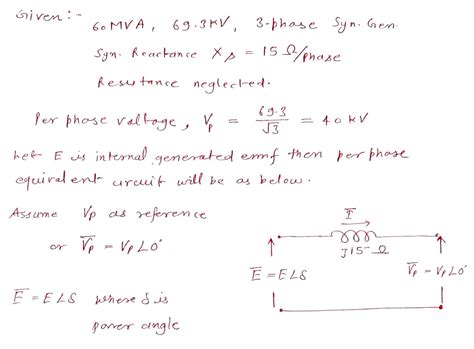 Given :-
60 MVA, 69.3 KV, 3-phase Syn. Gen
Syn. Reactance Xs = 15 Ω/phase
Resistance neglected.
Per phase voltage, Vp = 69.3/√3 = 40 KV
Let E is internal generated emf then per phase
equivalent circuit will be as below.
Assume Vp as reference
or V̅p = Vp∠0°
E̅ = E∠δ where δ is
power angle
I̅
J15 Ω
E̅ = E∠δ
V̅p = Vp∠0°